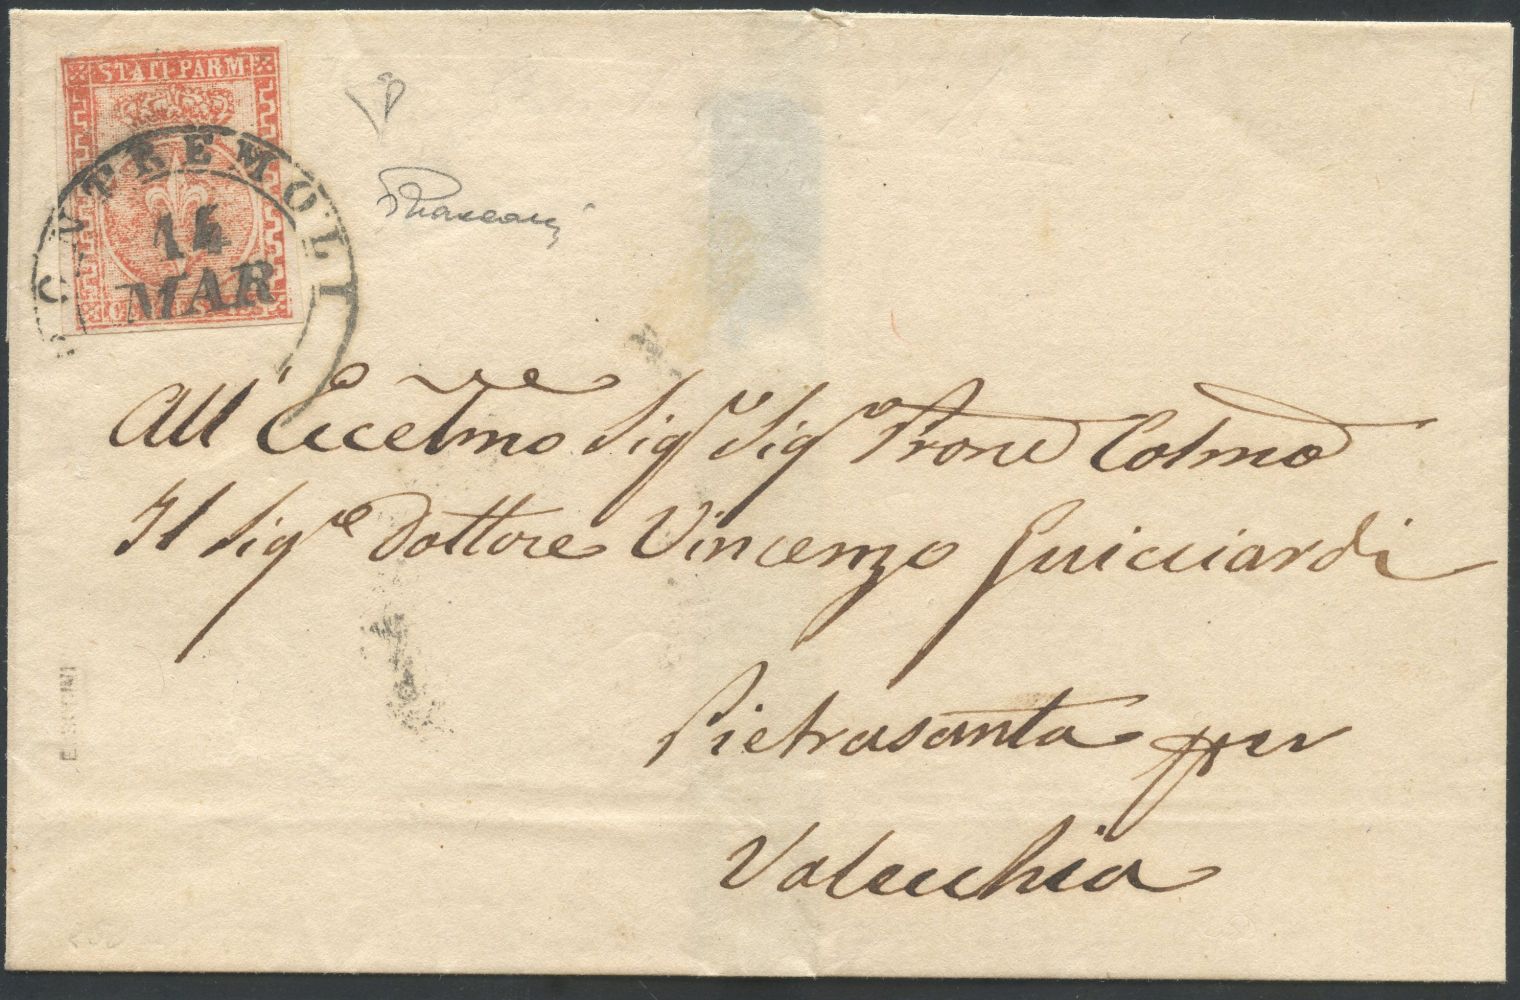 STATI·PARM·
PONTREMOLI
14
MAR
All' Eccelmo Sigr Sigr Prone Colmo
Il Sigre Dottore Vincenzo Guicciardi
Pietrasanta per
Valecchia